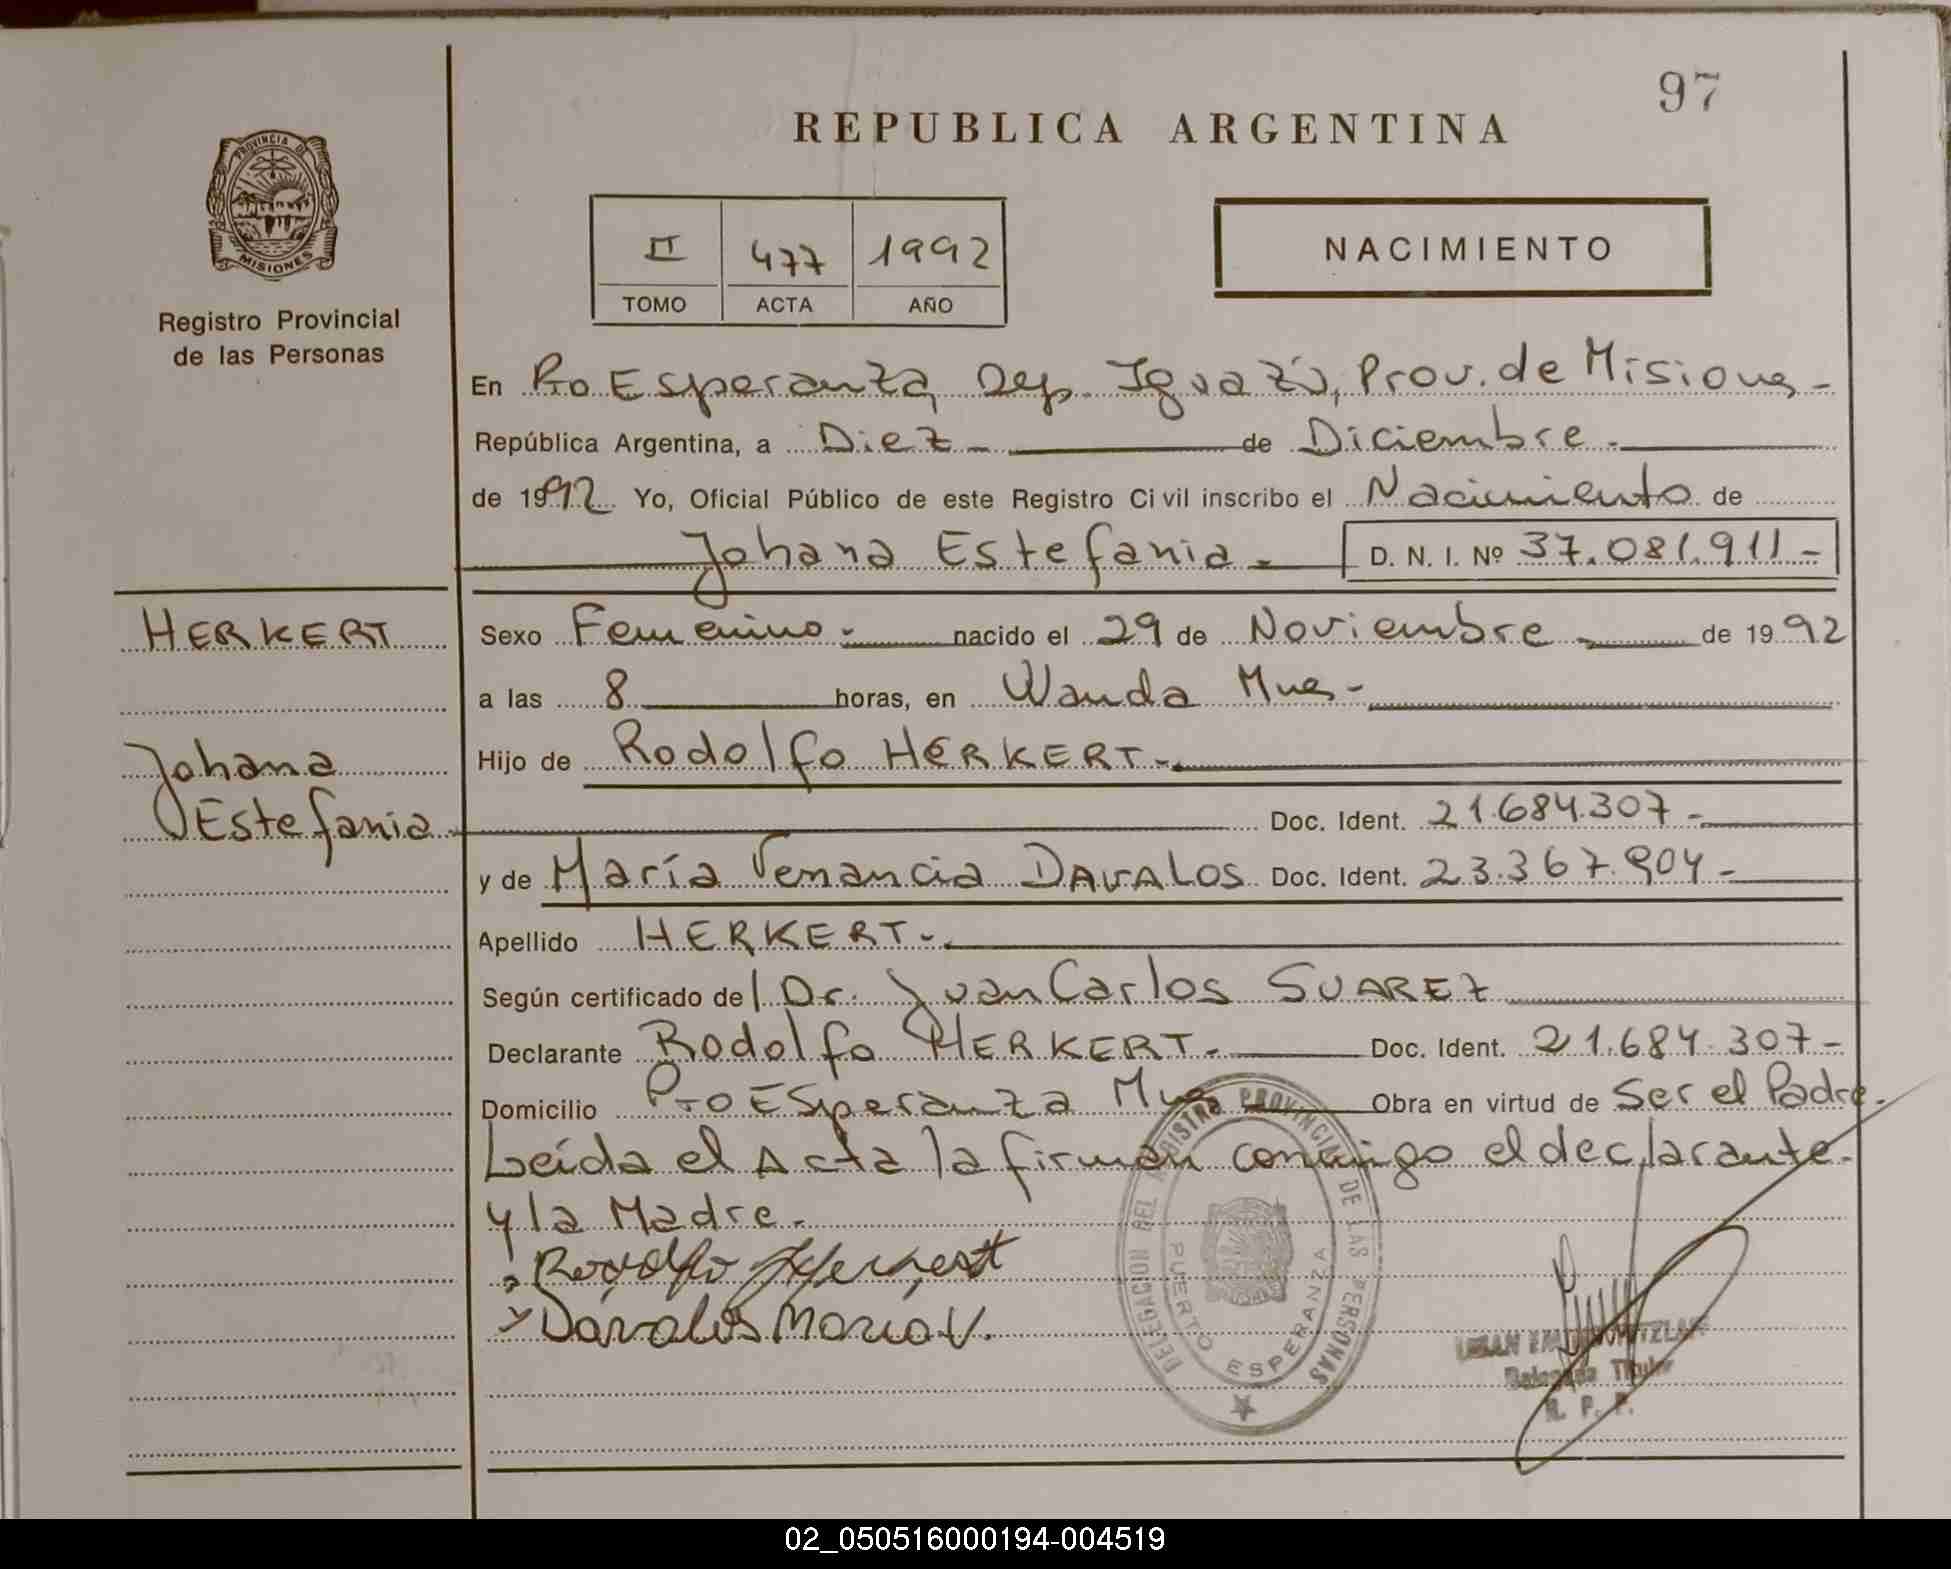 97
REPUBLICA ARGENTINA
PROVINCIA DE
MISIONES
Registro Provincial
de las Personas
II 477 1992
TOMO ACTA AÑO
NACIMIENTO
En Pto Esperanza, Dep. Iguazú, Prov. de Misiones-
República Argentina, a Diez- de Diciembre-
de 1992 Yo, Oficial Público de este Registro Civil inscribo el Nacimiento de
Johana Estefania- D. N. I. Nº 37.081.911-
HERKERT
Johana
Estefania
Sexo Femenino- nacido el 29 de Noviembre- de 1992
a las 8 horas, en Wanda Mnes-
Hijo de Rodolfo HERKERT-
Doc. Ident. 21.684.307-
y de María Venancia DAVALOS Doc. Ident. 23.367.904-
Apellido HERKERT-
Según certificado del Dr. Juan Carlos SUAREZ
Declarante Rodolfo HERKERT- Doc. Ident. 21.684.307-
Domicilio Pto Esperanza Mnes Obra en virtud de Ser el Padre.
Leída el Acta la firman conmigo el declarante-
y la Madre.
Rodolfo Herkert
Dávalos María V.
DELEGACION DEL REGISTRO PROVINCIAL DE LAS PERSONAS
PUERTO ESPERANZA
Titular
R. P. P.
02_050516000194-004519